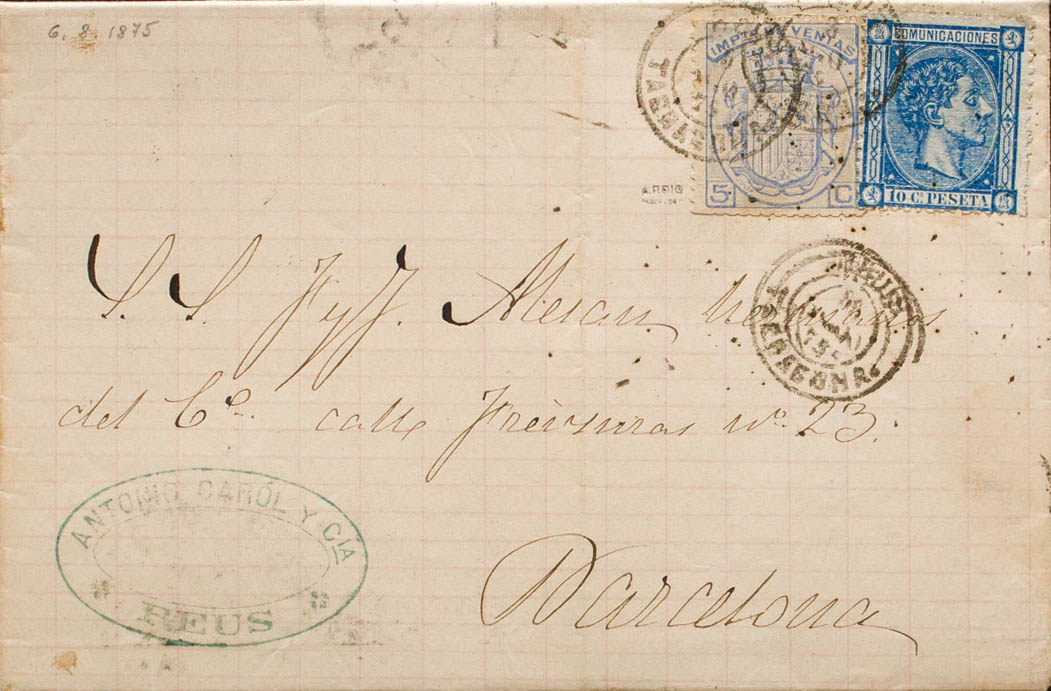 6. 8. 1875
IMPTO VENTAS
5 C
COMUNICACIONES
10 C. PESETA
TARRAGONA
REUS
TARRAGONA
S. S. J y J.
del Co. calle Freixuras no. 23.
Barcelona
ANTONIO CAROL Y CÍA
REUS